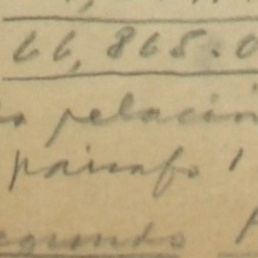 66,865.0
relación
párrafo 1
segundo